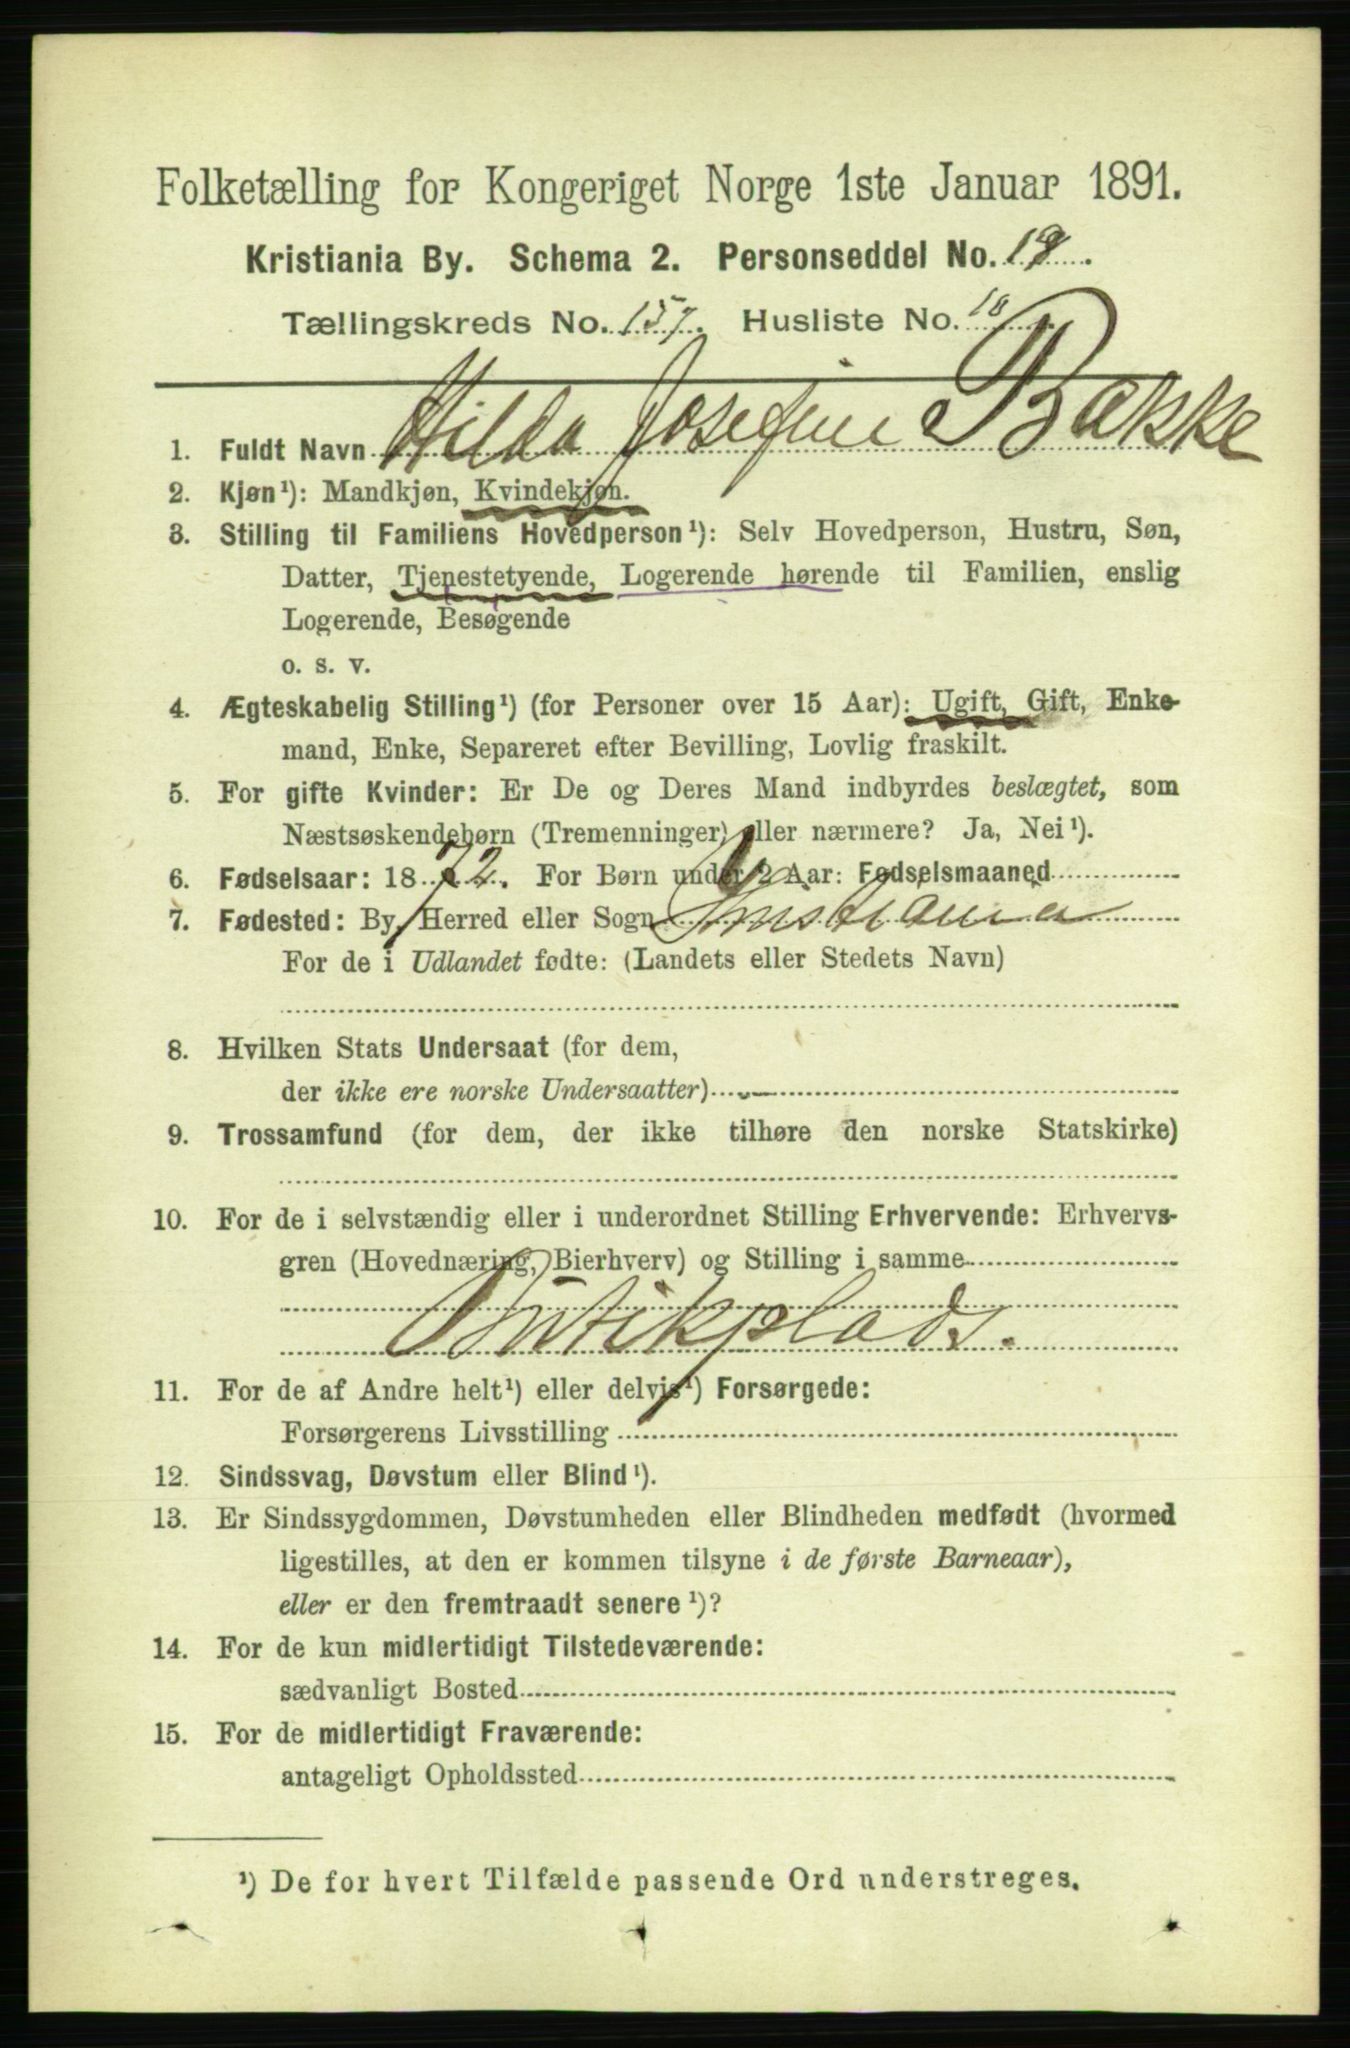 Folketælling for Kongeriget Norge 1ste Januar 1891.
Kristiania By. Schema 2. Personseddel No. 19.
Tællingskreds No. 157. Husliste No. 10.
1. Fuldt Navn Hilda Josefine Bakke
2. Kjøn¹): Mandkjøn, Kvindekjøn.
3. Stilling til Familiens Hovedperson¹): Selv Hovedperson, Hustru, Søn,
Datter, Tjenestetyende, Logerende hørende til Familien, enslig
Logerende, Besøgende
o. s. v.
4. Ægteskabelig Stilling¹) (for Personer over 15 Aar): Ugift, Gift, Enke-
mand, Enke, Separeret efter Bevilling, Lovlig fraskilt.
5. For gifte Kvinder: Er De og Deres Mand indbyrdes beslægtet, som
Næstsøskendebørn (Tremenninger) eller nærmere? Ja, Nei¹).
6. Fødselsaar: 1872. For Børn under 2 Aar: Fødselsmaaned
7. Fødested: By, Herred eller Sogn Kristiania
For de i Udlandet fødte: (Landets eller Stedets Navn)
8. Hvilken Stats Undersaat (for dem,
der ikke ere norske Undersaatter)
9. Trossamfund (for dem, der ikke tilhøre den norske Statskirke)
10. For de i selvstændig eller i underordnet Stilling Erhvervende: Erhvervs-
gren (Hovednæring, Bierhverv) og Stilling i samme
Butikplads.
11. For de af Andre helt¹) eller delvis¹) Forsørgede:
Forsørgerens Livsstilling
12. Sindssvag, Døvstum eller Blind¹).
13. Er Sindssygdommen, Døvstumheden eller Blindheden medfødt (hvormed
ligestilles, at den er kommen tilsyne i de første Barneaar),
eller er den fremtraadt senere¹)?
14. For de kun midlertidigt Tilstedeværende:
sædvanligt Bosted
15. For de midlertidigt Fraværende:
antageligt Opholdssted
¹) De for hvert Tilfælde passende Ord understreges.